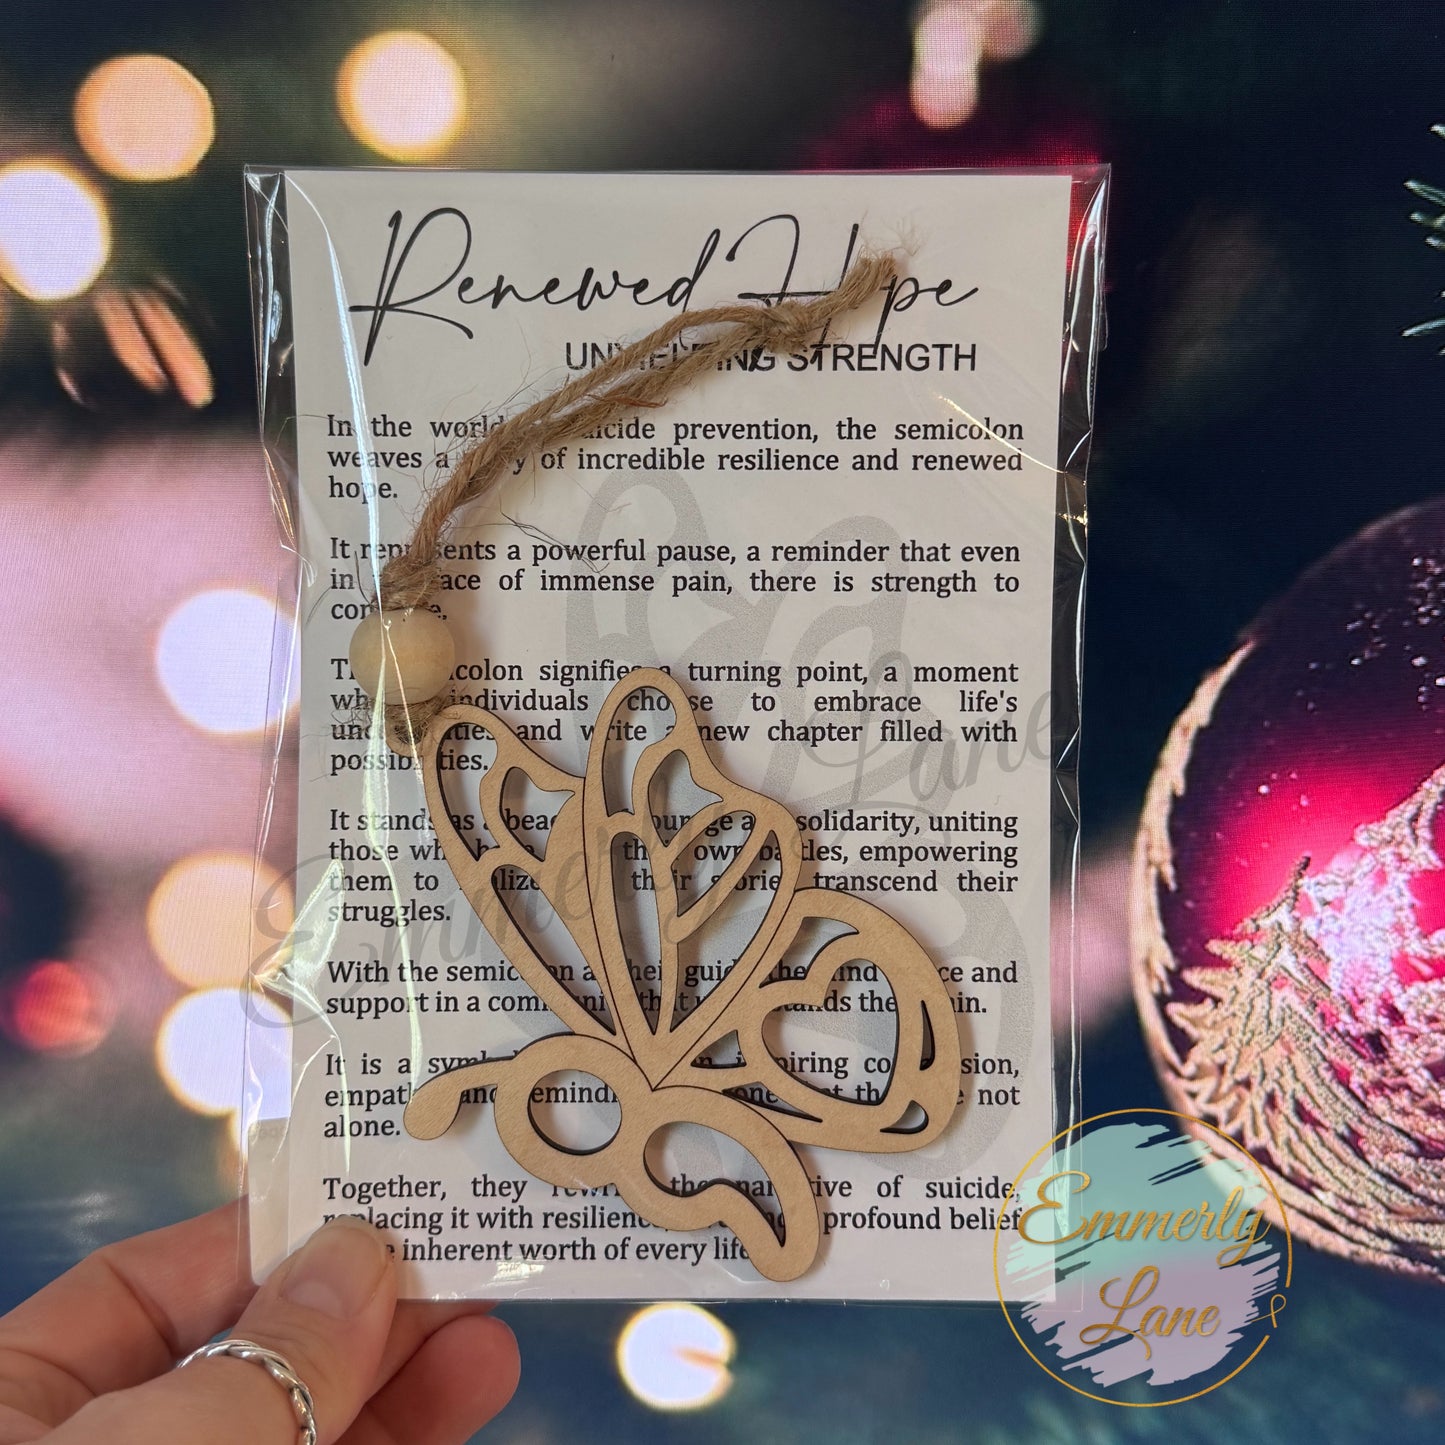 Renewed Hope
UNYIELDING STRENGTH
In the world suicide prevention, the semicolon
weaves a of incredible resilience and renewed
hope.
It represents a powerful pause, a reminder that even
in face of immense pain, there is strength to
The semicolon signifies a turning point, a moment
individuals choose to embrace life's
and write a new chapter filled with
possibilities.
It stands as a beacon courage and solidarity, uniting
those who their own battles, empowering
them to realize their stories transcend their
struggles.
With the semicolon as their guide, they find solace and
support in a community that understands their pain.
It is a symbol inspiring compassion,
empathy, and not
alone.
Together, they the narrative of suicide,
replacing it with resilience, profound belief
inherent worth of every life.
Emmerly Lane
Emmerly
Lane